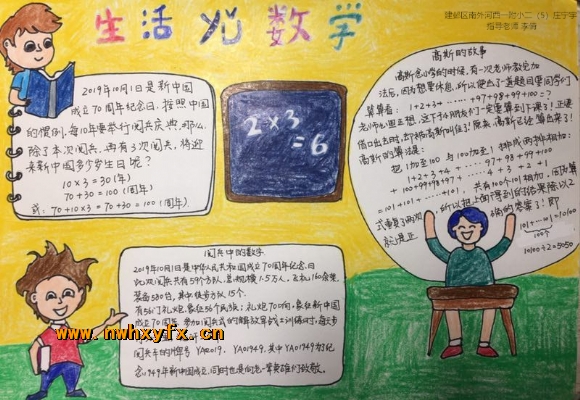 生活数学
建邺区南外河西一附小二（5）庄宁宇
指导老师 李倩
2019年10月1日是新中国
成立70周年纪念日，按照中国
的惯例，每10年要举行阅兵庆典，那么
除了本次阅兵，再有3次阅兵，将迎
来新中国多少岁生日呢？
10×3=30（年）
70+30=100（周年）
或：70+10×3=70+30=100（周年）
2×3
=6
高斯的故事
高斯念小学的时候，有一次老师教完加
法后，因为想要休息，所以便出了一道题目要同学们
算算看：1+2+3+……+97+98+99+100=？
老师心里正想，这下子小朋友们一定要算到下课了！正要
借口出去时，却被高斯叫住了！原来，高斯已经算出来了！
高斯的算法是：
把1加至100与100加至1排成两排相加：
1+2+3+4+……97+98+99+100
+100+99+98+97+……4+3+2+1
=101+101+……+101，共有100个101相加，但算
式重复了两次，所以把上面得到的结果除以2
就是正确的答案了！即
101+…101=10100
100个
10100÷2=5050
阅兵中的数字
2019年10月1日是中华人民共和国成立70周年纪念日
此次阅兵共有59个方队，总规模1.5万人，飞机160余架，
装备580台，其中徒步方队15个。
有56门礼炮，象征56个民族；礼炮70响，象征新中国
成立70周年。参加阅兵式的解放军战士训练时，每步
阅兵车的牌号 YA2019、YA01949，其中YA01949为纪
念1949年新中国成立，同时也是向老一辈英雄们致敬。
www.nwhxyfx.cn